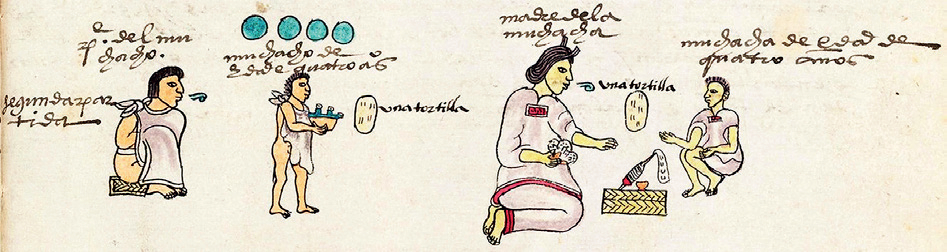 pe. del mu
chacho.
segunda par
tida
muchacho de
edad de quatro aos
una tortilla
madre de la
muchacha
una tortilla
muchacha de edad de
quatro anos